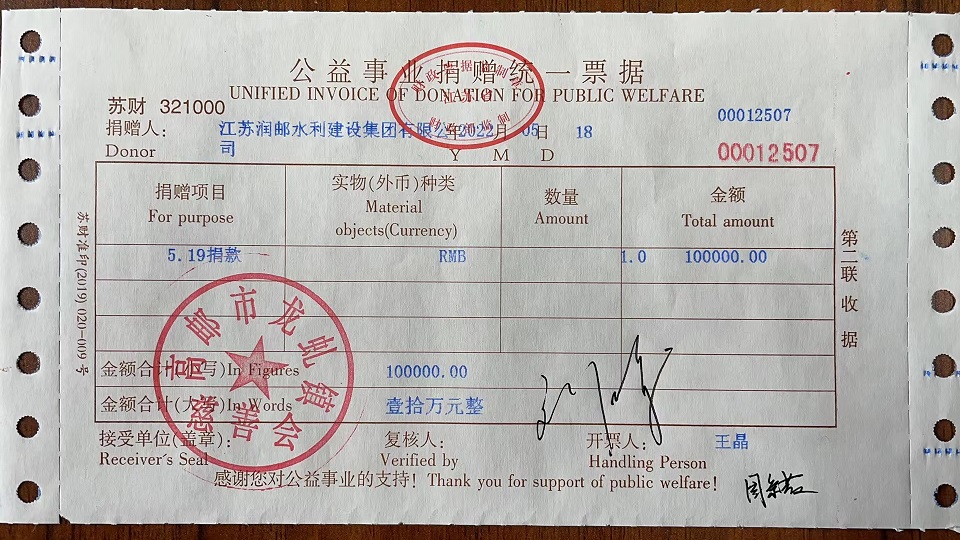 公益事业捐赠统一票据
UNIFIED INVOICE OF DONATION FOR PUBLIC WELFARE
苏财 321000
00012507
捐赠人： 江苏润邮水利建设集团有限公司 2022年 05月 18日
Donor Y M D
00012507
捐赠项目 实物(外币)种类 数量 金额
For purpose Material objects(Currency) Amount Total amount
5.19捐款 RMB 1.0 100000.00
金额合计(小写)In Figures 100000.00
金额合计(大写)In Words 壹拾万元整
接受单位(盖章)： 复核人： 开票人： 王晶
Receiver's Seal Verified by Handling Person
感谢您对公益事业的支持！Thank you for support of public welfare!
苏财准印(2019) 020-009 号
第二联 收据
高邮市龙虬镇慈善会